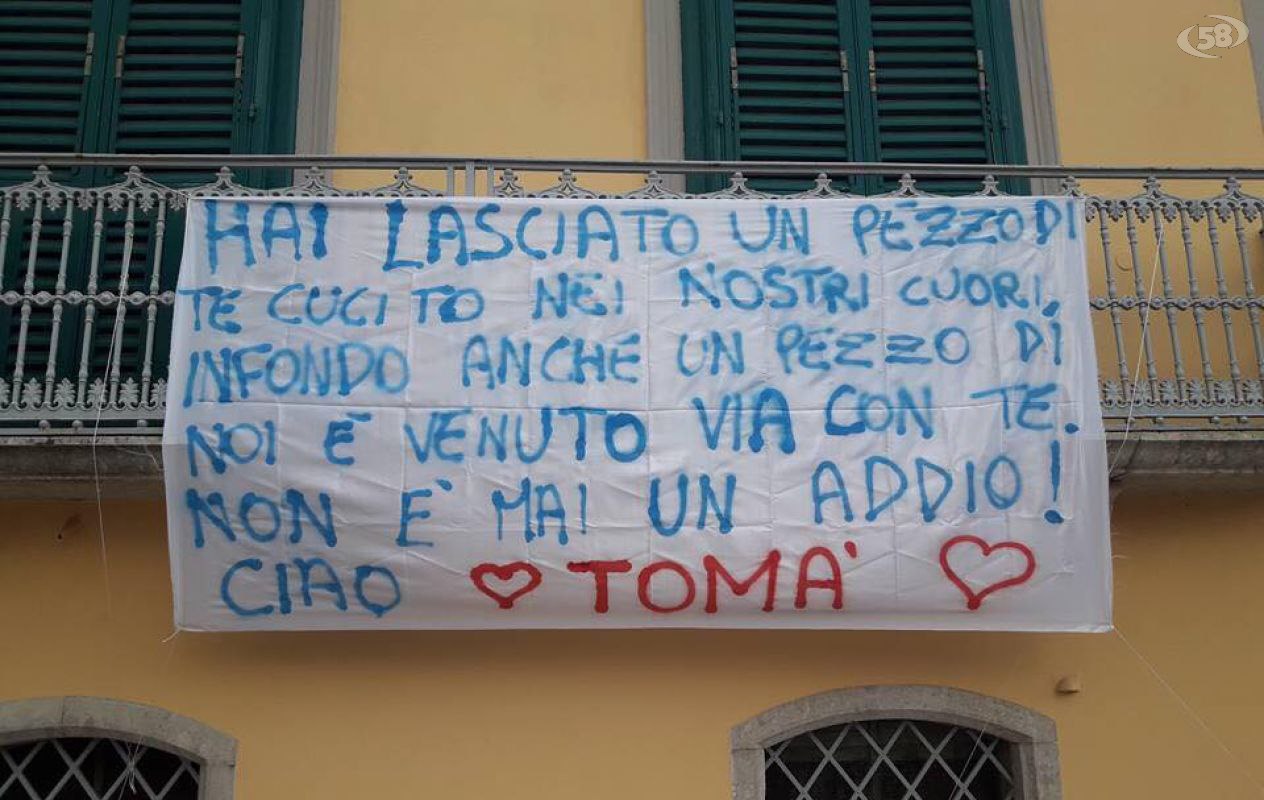 58
HAI LASCIATO UN PEZZO DI
TE CUCITO NEI NOSTRI CUORI,
INFONDO ANCHE UN PEZZO DI
NOI È VENUTO VIA CON TE.
NON È MAI UN ADDIO!
CIAO ♥ TOMA' ♥